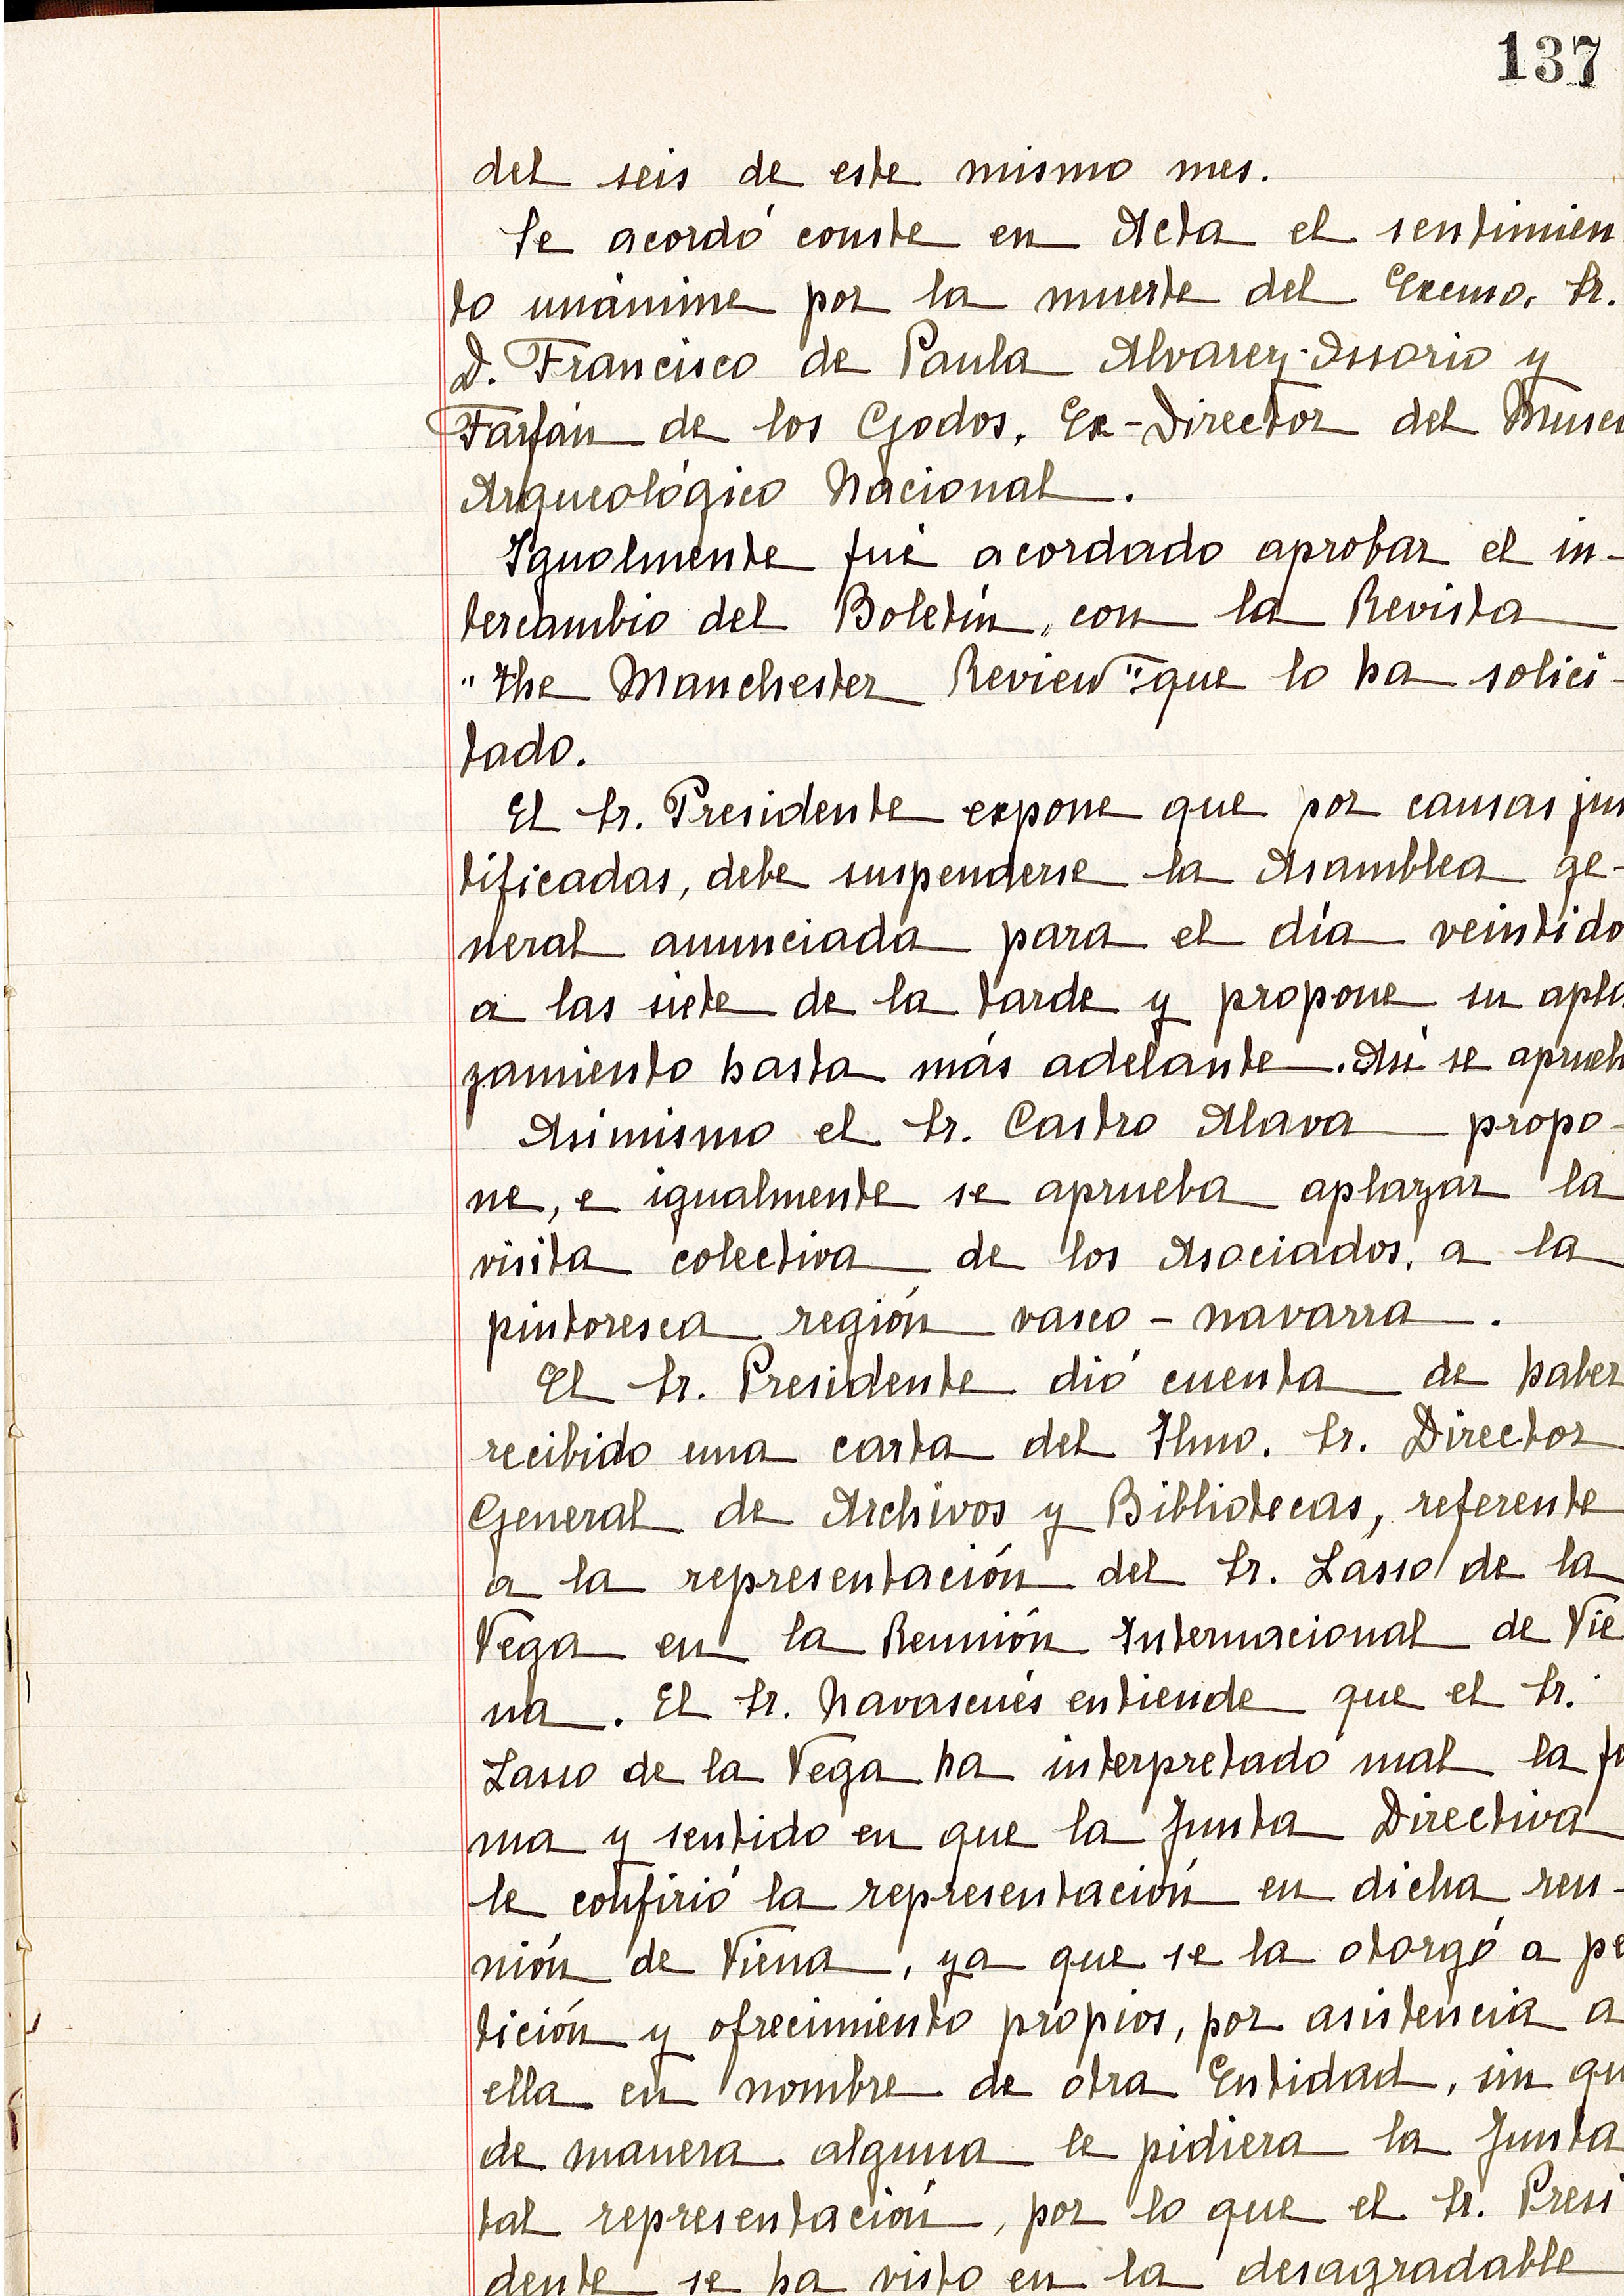 137
del seis de este mismo mes.
Se acordó conste en Acta el sentimien
to unánime por la muerte del Excmo. Sr.
D. Francisco de Paula Alvarez-Ossorio y
Farfán de los Godos, Ex-Director del Museo
Arqueológico Nacional.
Igualmente fué acordado aprobar el in-
tercambio del Boletín, con la Revista
"The Manchester Review" que lo ha solici-
tado.
El Sr. Presidente expone que por causas jus
tificadas, debe suspenderse la Asamblea ge-
neral anunciada para el día veintido
a las siete de la tarde y propone su apla
zamiento hasta más adelante. Así se aprueb
Asimismo el Sr. Castro Alava propo-
ne, e igualmente se aprueba aplazar la
visita colectiva de los Asociados, a la
pintoresca región vasco-navarra.
El Sr. Presidente dió cuenta de haber
recibido una carta del Ilmo. Sr. Director
General de Archivos y Bibliotecas, referente
a la representación del Sr. Lasso de la
Vega en la Reunión Internacional de Vie
na. El Sr. Navascués entiende que el Sr.
Lasso de la Vega ha interpretado mal la fo
ma y sentido en que la Junta Directiva
le confirió la representación en dicha reu-
nión de Viena, ya que se la otorgó a pe
tición y ofrecimiento propios, por asistencia a
ella en nombre de otra Entidad, sin qu
de manera alguna le pidiera la Junta
tal representación, por lo que el Sr. Presi
dente se ha visto en la desagradable